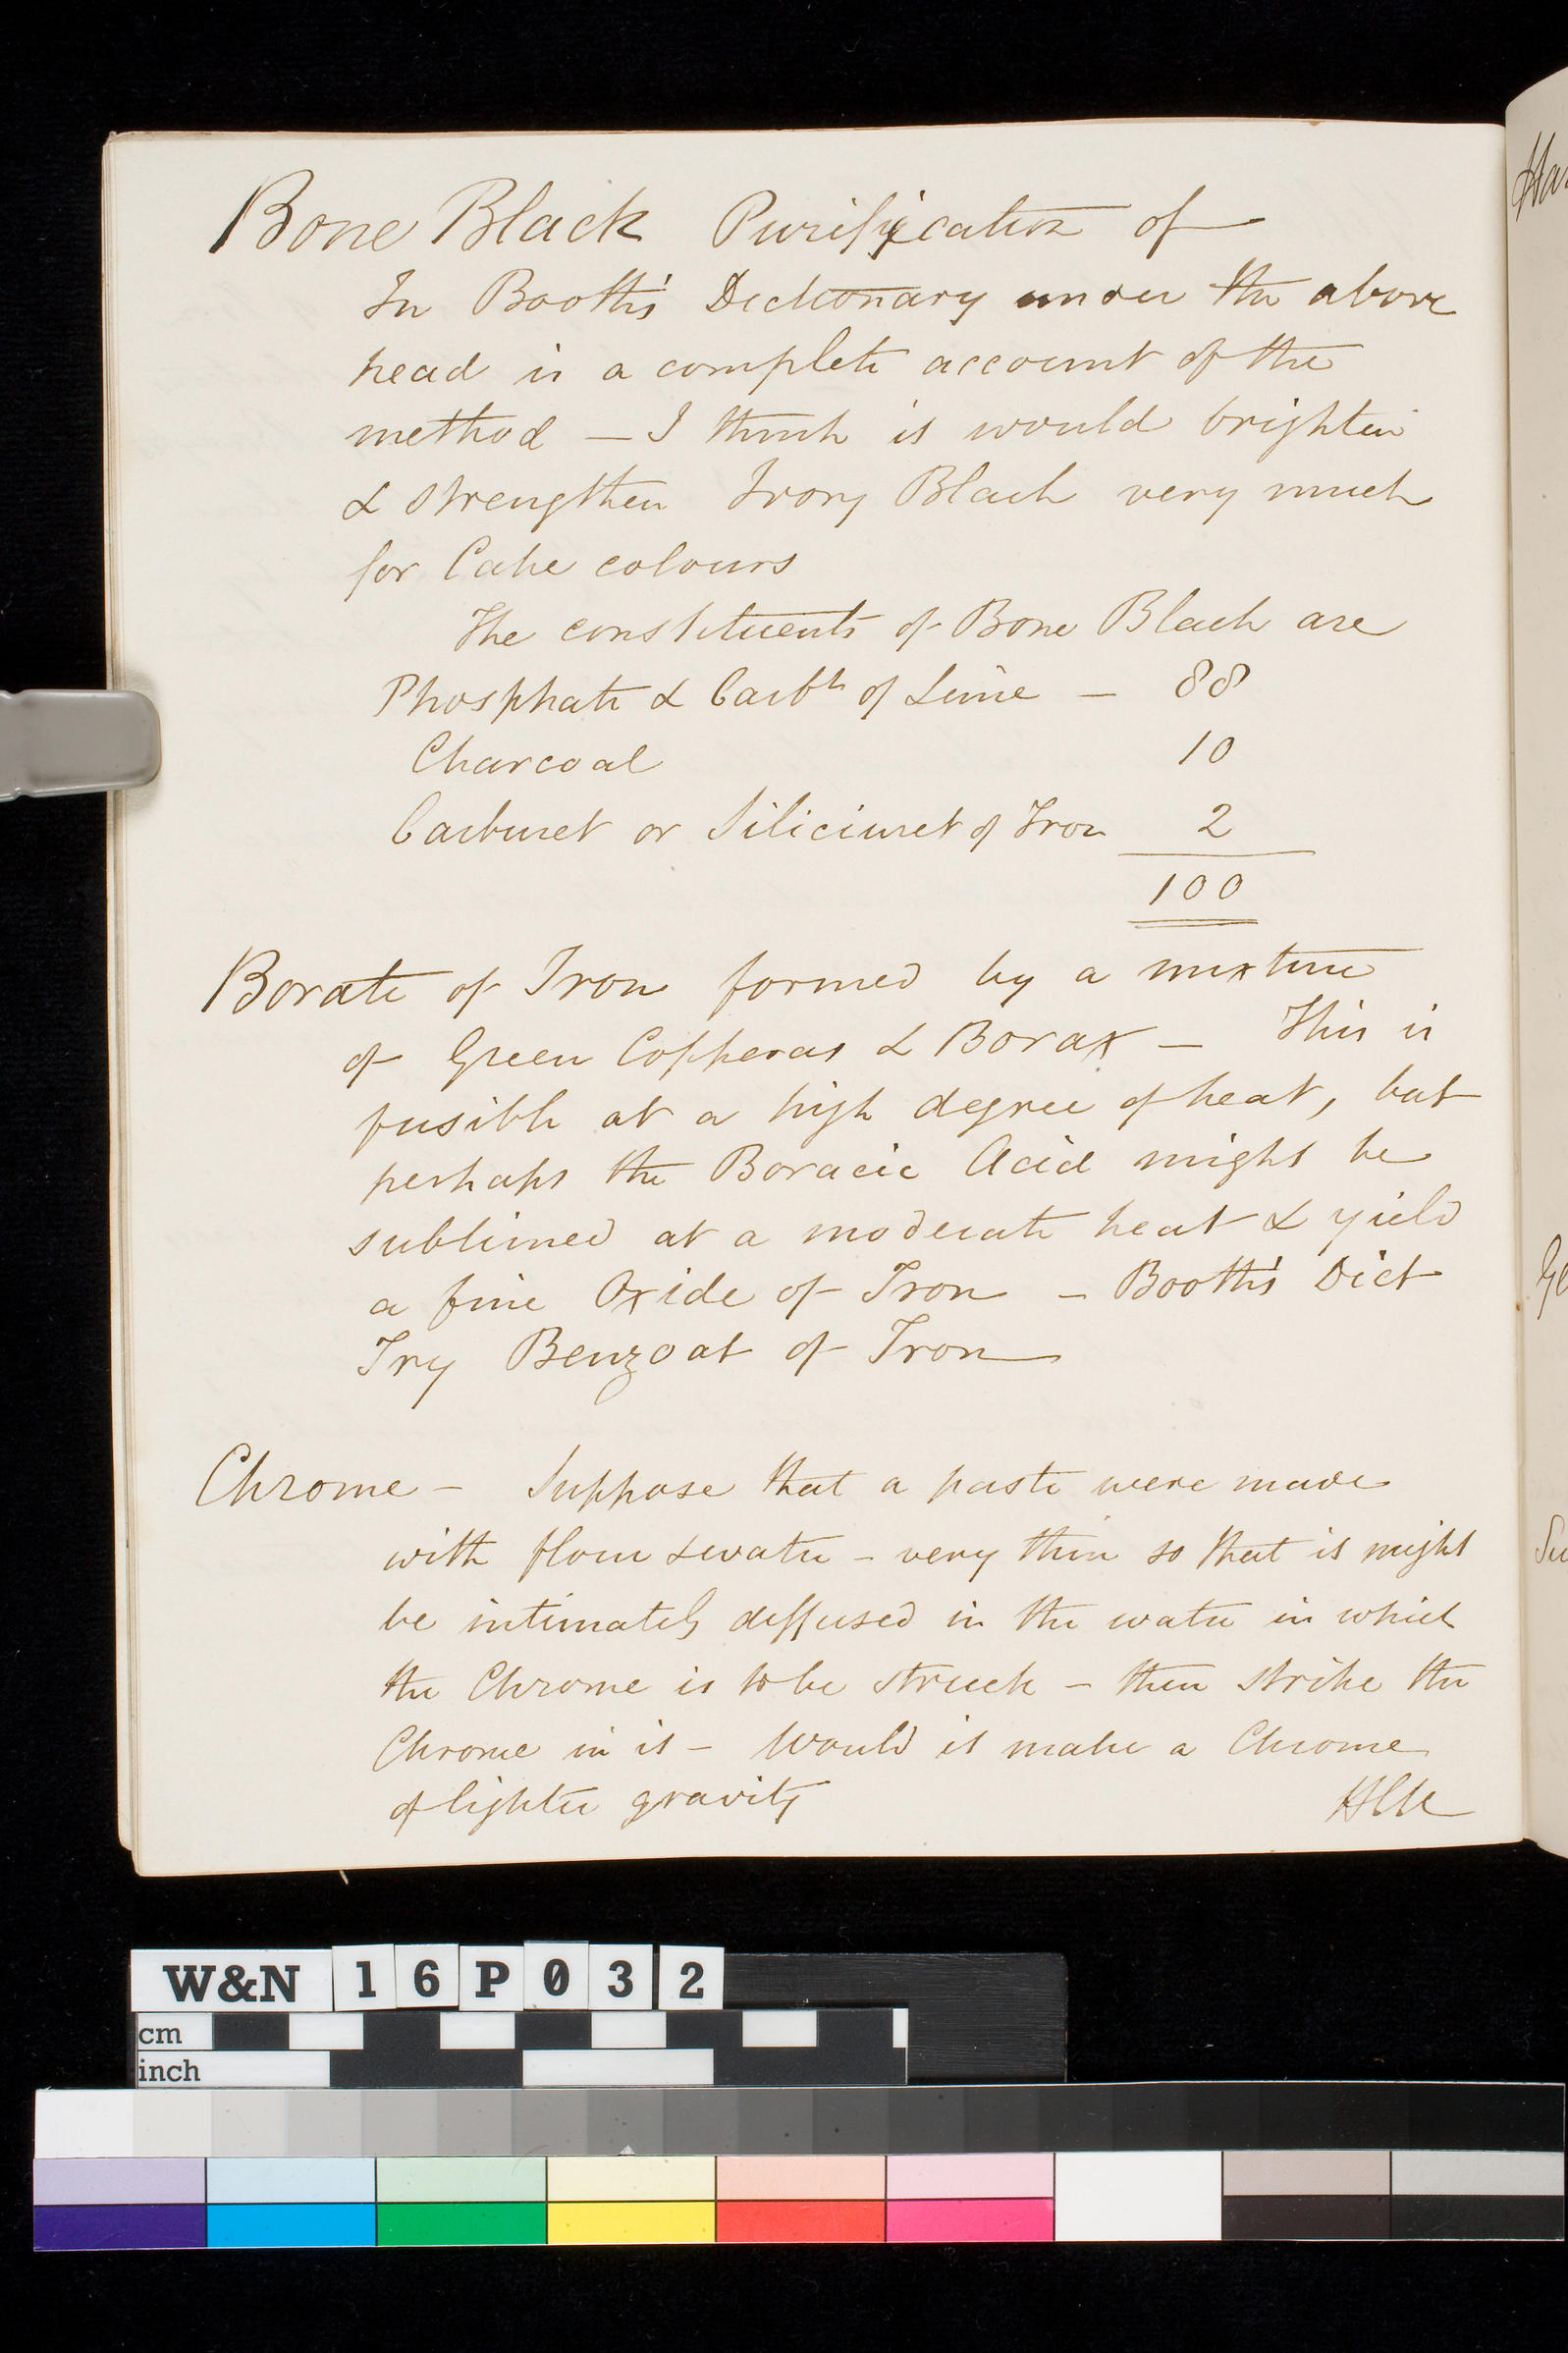 Bone Black Purification of
In Booth's Dictionary under the above
head is a complete account of the
method — I think it would brighten
& strengthen Ivory Black very much
for Cake colours
The constituents of Bone Black are
Phosphate & Carbte of Lime — 88
Charcoal 10
Carburet or Siliciuret of Iron 2
100
Borate of Iron formed by a mixture
of Green Copperas & Borax — This is
fusible at a high degree of heat, but
perhaps the Boracic Acid might be
sublimed at a moderate heat & yield
a fine Oxide of Iron — Booth's Dict
Try Benzoat of Iron
Chrome — Suppose that a paste were made
with flour & water — very thin so that it might
be intimately diffused in the water in which
the Chrome is to be struck — then strike the
Chrome in it — Would it make a Chrome
of lighter gravity
W&N 16P032
cm
inch